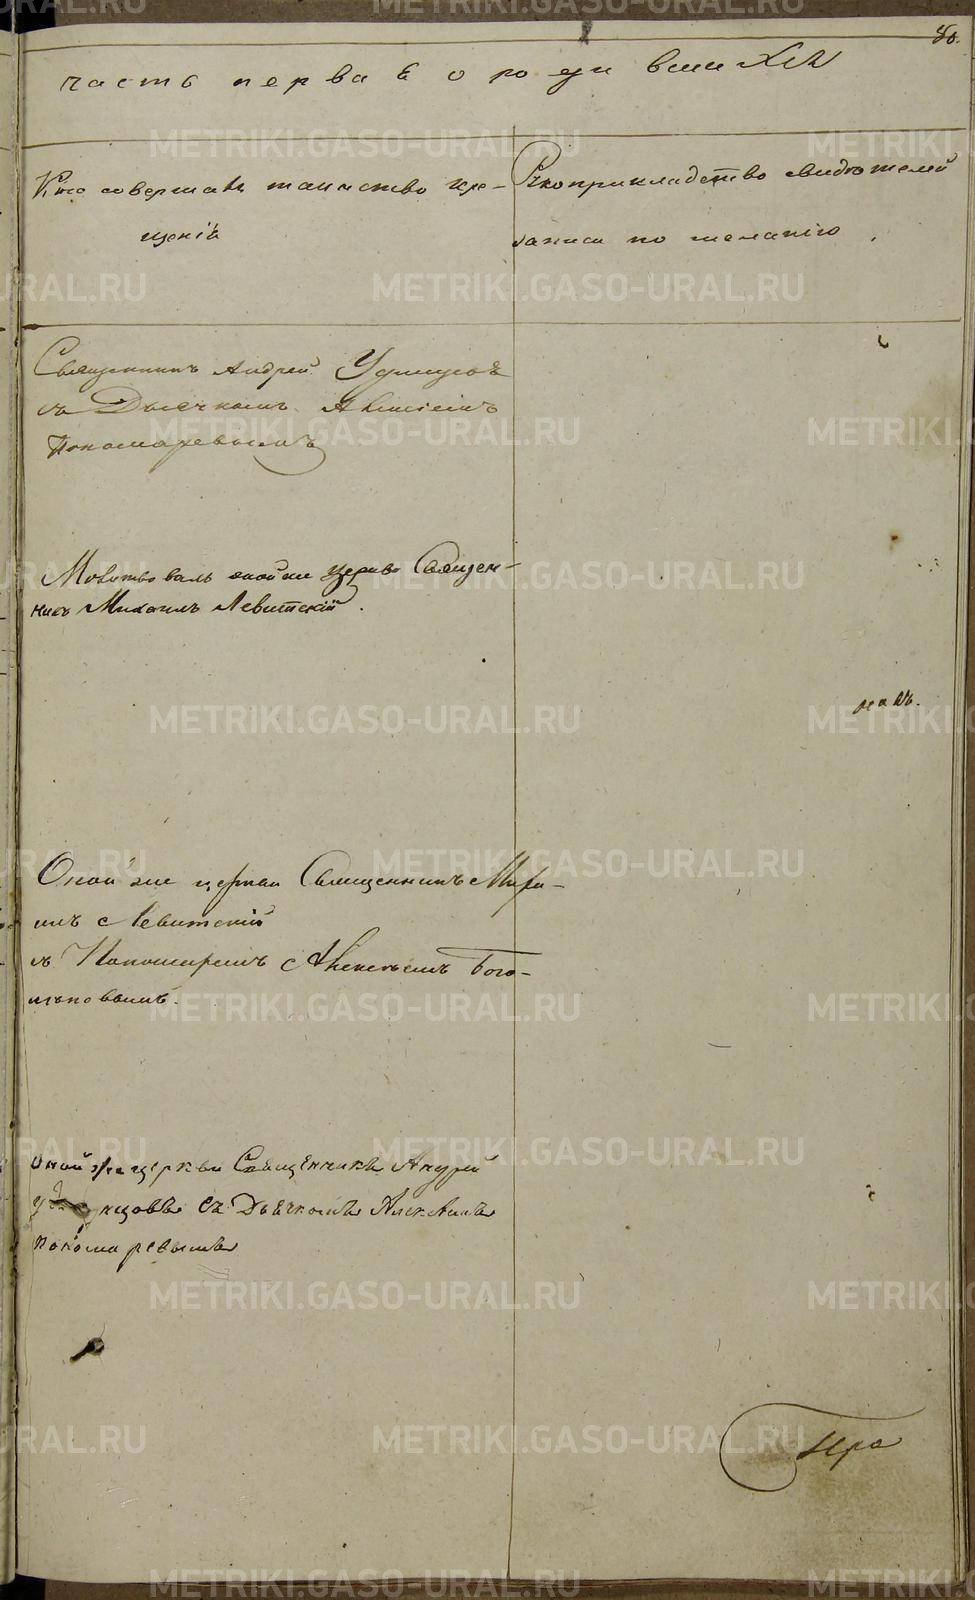 часть перваѣ о роди вшихся
Кто совершалъ таинство кре-
щенія
Рукоприкладство свидѣтелей
записи по желанію
Священникъ Андрей Удинцовъ
съ Дьячкомъ Алексіемъ
Пономаревымъ
Молитвовалъ оной же церкви Священ-
никъ Михаилъ Левитскій.
Оной же церкви Священникъ Миха-
илъ Левитскій
съ Пономаремъ Алексѣемъ Бого-
мѣновымъ.
оной же церкви Священникъ Андрей
съ Дьячкомъ
Пономаревымъ
METRIKI.GASO-URAL.RU